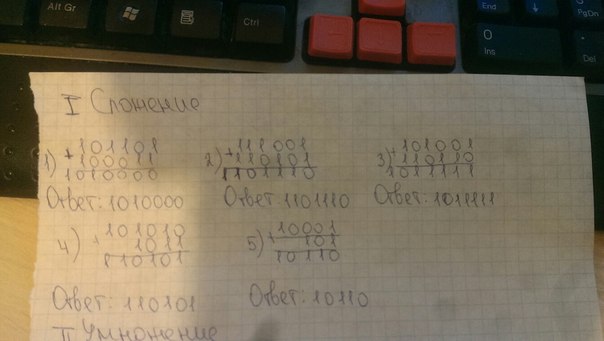 Alt Gr
Ctrl
End
PgDn
0
Ins
.
Del
I Сложение
1) +101101
100011
1010000
Ответ: 1010000
2) +111001
110101
1101110
Ответ 1101110
3) +101001
110110
1011111
Ответ: 1011111
4) +101010
1011
110101
Ответ: 110101
5) +10001
101
10110
Ответ: 10110
II Умножение